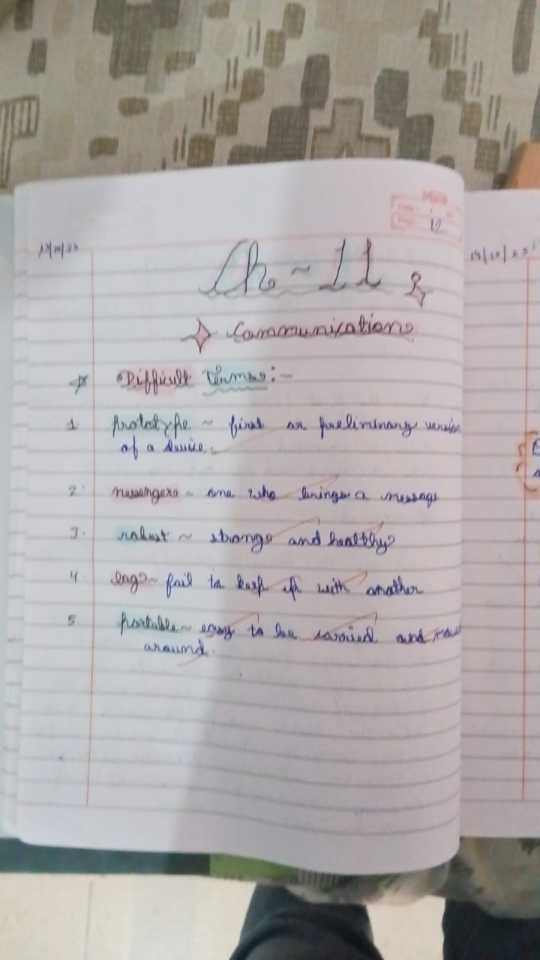 12
Ch ~ 11
Communication
Difficult Terms :-
1 prototype ~ first or preliminary version
of a device.
2. messenger ~ one who brings a message
3. robust ~ strong and healthy
4 lag ~ fail to keep up with another
5 portable ~ easy to be carried and
around.